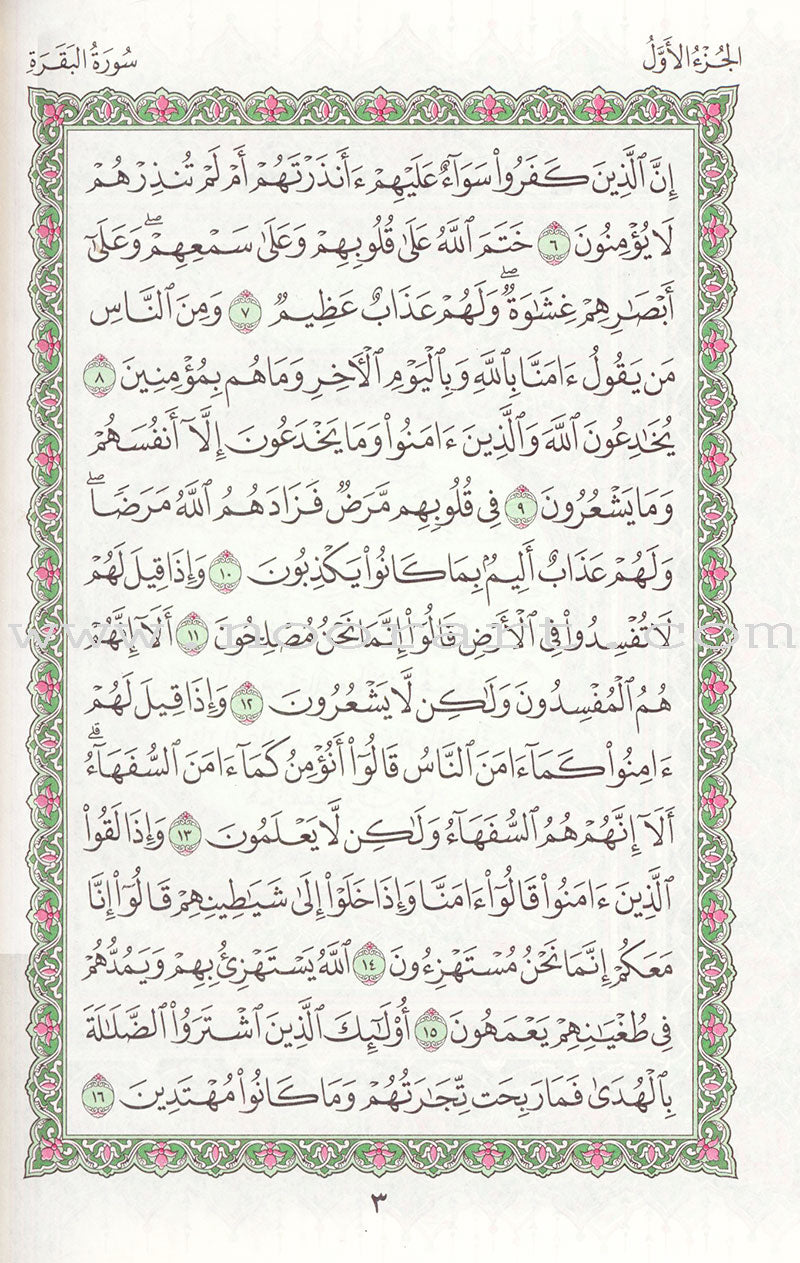 الجُزْءُ الأَوَّلُ
سُورَةُ البَقَرَةِ
إِنَّ ٱلَّذِينَ كَفَرُوا۟ سَوَآءٌ عَلَيْهِمْ ءَأَنذَرْتَهُمْ أَمْ لَمْ تُنذِرْهُمْ
لَا يُؤْمِنُونَ ٦ خَتَمَ ٱللَّهُ عَلَىٰ قُلُوبِهِمْ وَعَلَىٰ سَمْعِهِمْ ۖ وَعَلَىٰٓ
أَبْصَـٰرِهِمْ غِشَـٰوَةٌ ۖ وَلَهُمْ عَذَابٌ عَظِيمٌ ٧ وَمِنَ ٱلنَّاسِ
مَن يَقُولُ ءَامَنَّا بِٱللَّهِ وَبِٱلْيَوْمِ ٱلْـَٔاخِرِ وَمَا هُم بِمُؤْمِنِينَ ٨
يُخَـٰدِعُونَ ٱللَّهَ وَٱلَّذِينَ ءَامَنُوا۟ وَمَا يَخْدَعُونَ إِلَّآ أَنفُسَهُمْ
وَمَا يَشْعُرُونَ ٩ فِى قُلُوبِهِم مَّرَضٌ فَزَادَهُمُ ٱللَّهُ مَرَضًا ۖ
وَلَهُمْ عَذَابٌ أَلِيمٌۢ بِمَا كَانُوا۟ يَكْذِبُونَ ١٠ وَإِذَا قِيلَ لَهُمْ
لَا تُفْسِدُوا۟ فِى ٱلْأَرْضِ قَالُوٓا۟ إِنَّمَا نَحْنُ مُصْلِحُونَ ١١ أَلَآ إِنَّهُمْ
هُمُ ٱلْمُفْسِدُونَ وَلَـٰكِن لَّا يَشْعُرُونَ ١٢ وَإِذَا قِيلَ لَهُمْ
ءَامِنُوا۟ كَمَآ ءَامَنَ ٱلنَّاسُ قَالُوٓا۟ أَنُؤْمِنُ كَمَآ ءَامَنَ ٱلسُّفَهَآءُ ۗ
أَلَآ إِنَّهُمْ هُمُ ٱلسُّفَهَآءُ وَلَـٰكِن لَّا يَعْلَمُونَ ١٣ وَإِذَا لَقُوا۟
ٱلَّذِينَ ءَامَنُوا۟ قَالُوٓا۟ ءَامَنَّا وَإِذَا خَلَوْا۟ إِلَىٰ شَيَـٰطِينِهِمْ قَالُوٓا۟ إِنَّا
مَعَكُمْ إِنَّمَا نَحْنُ مُسْتَهْزِءُونَ ١٤ ٱللَّهُ يَسْتَهْزِئُ بِهِمْ وَيَمُدُّهُمْ
فِى طُغْيَـٰنِهِمْ يَعْمَهُونَ ١٥ أُو۟لَـٰٓئِكَ ٱلَّذِينَ ٱشْتَرَوُا۟ ٱلضَّلَـٰلَةَ
بِٱلْهُدَىٰ فَمَا رَبِحَت تِّجَـٰرَتُهُمْ وَمَا كَانُوا۟ مُهْتَدِينَ ١٦
٣
www.noorart.com